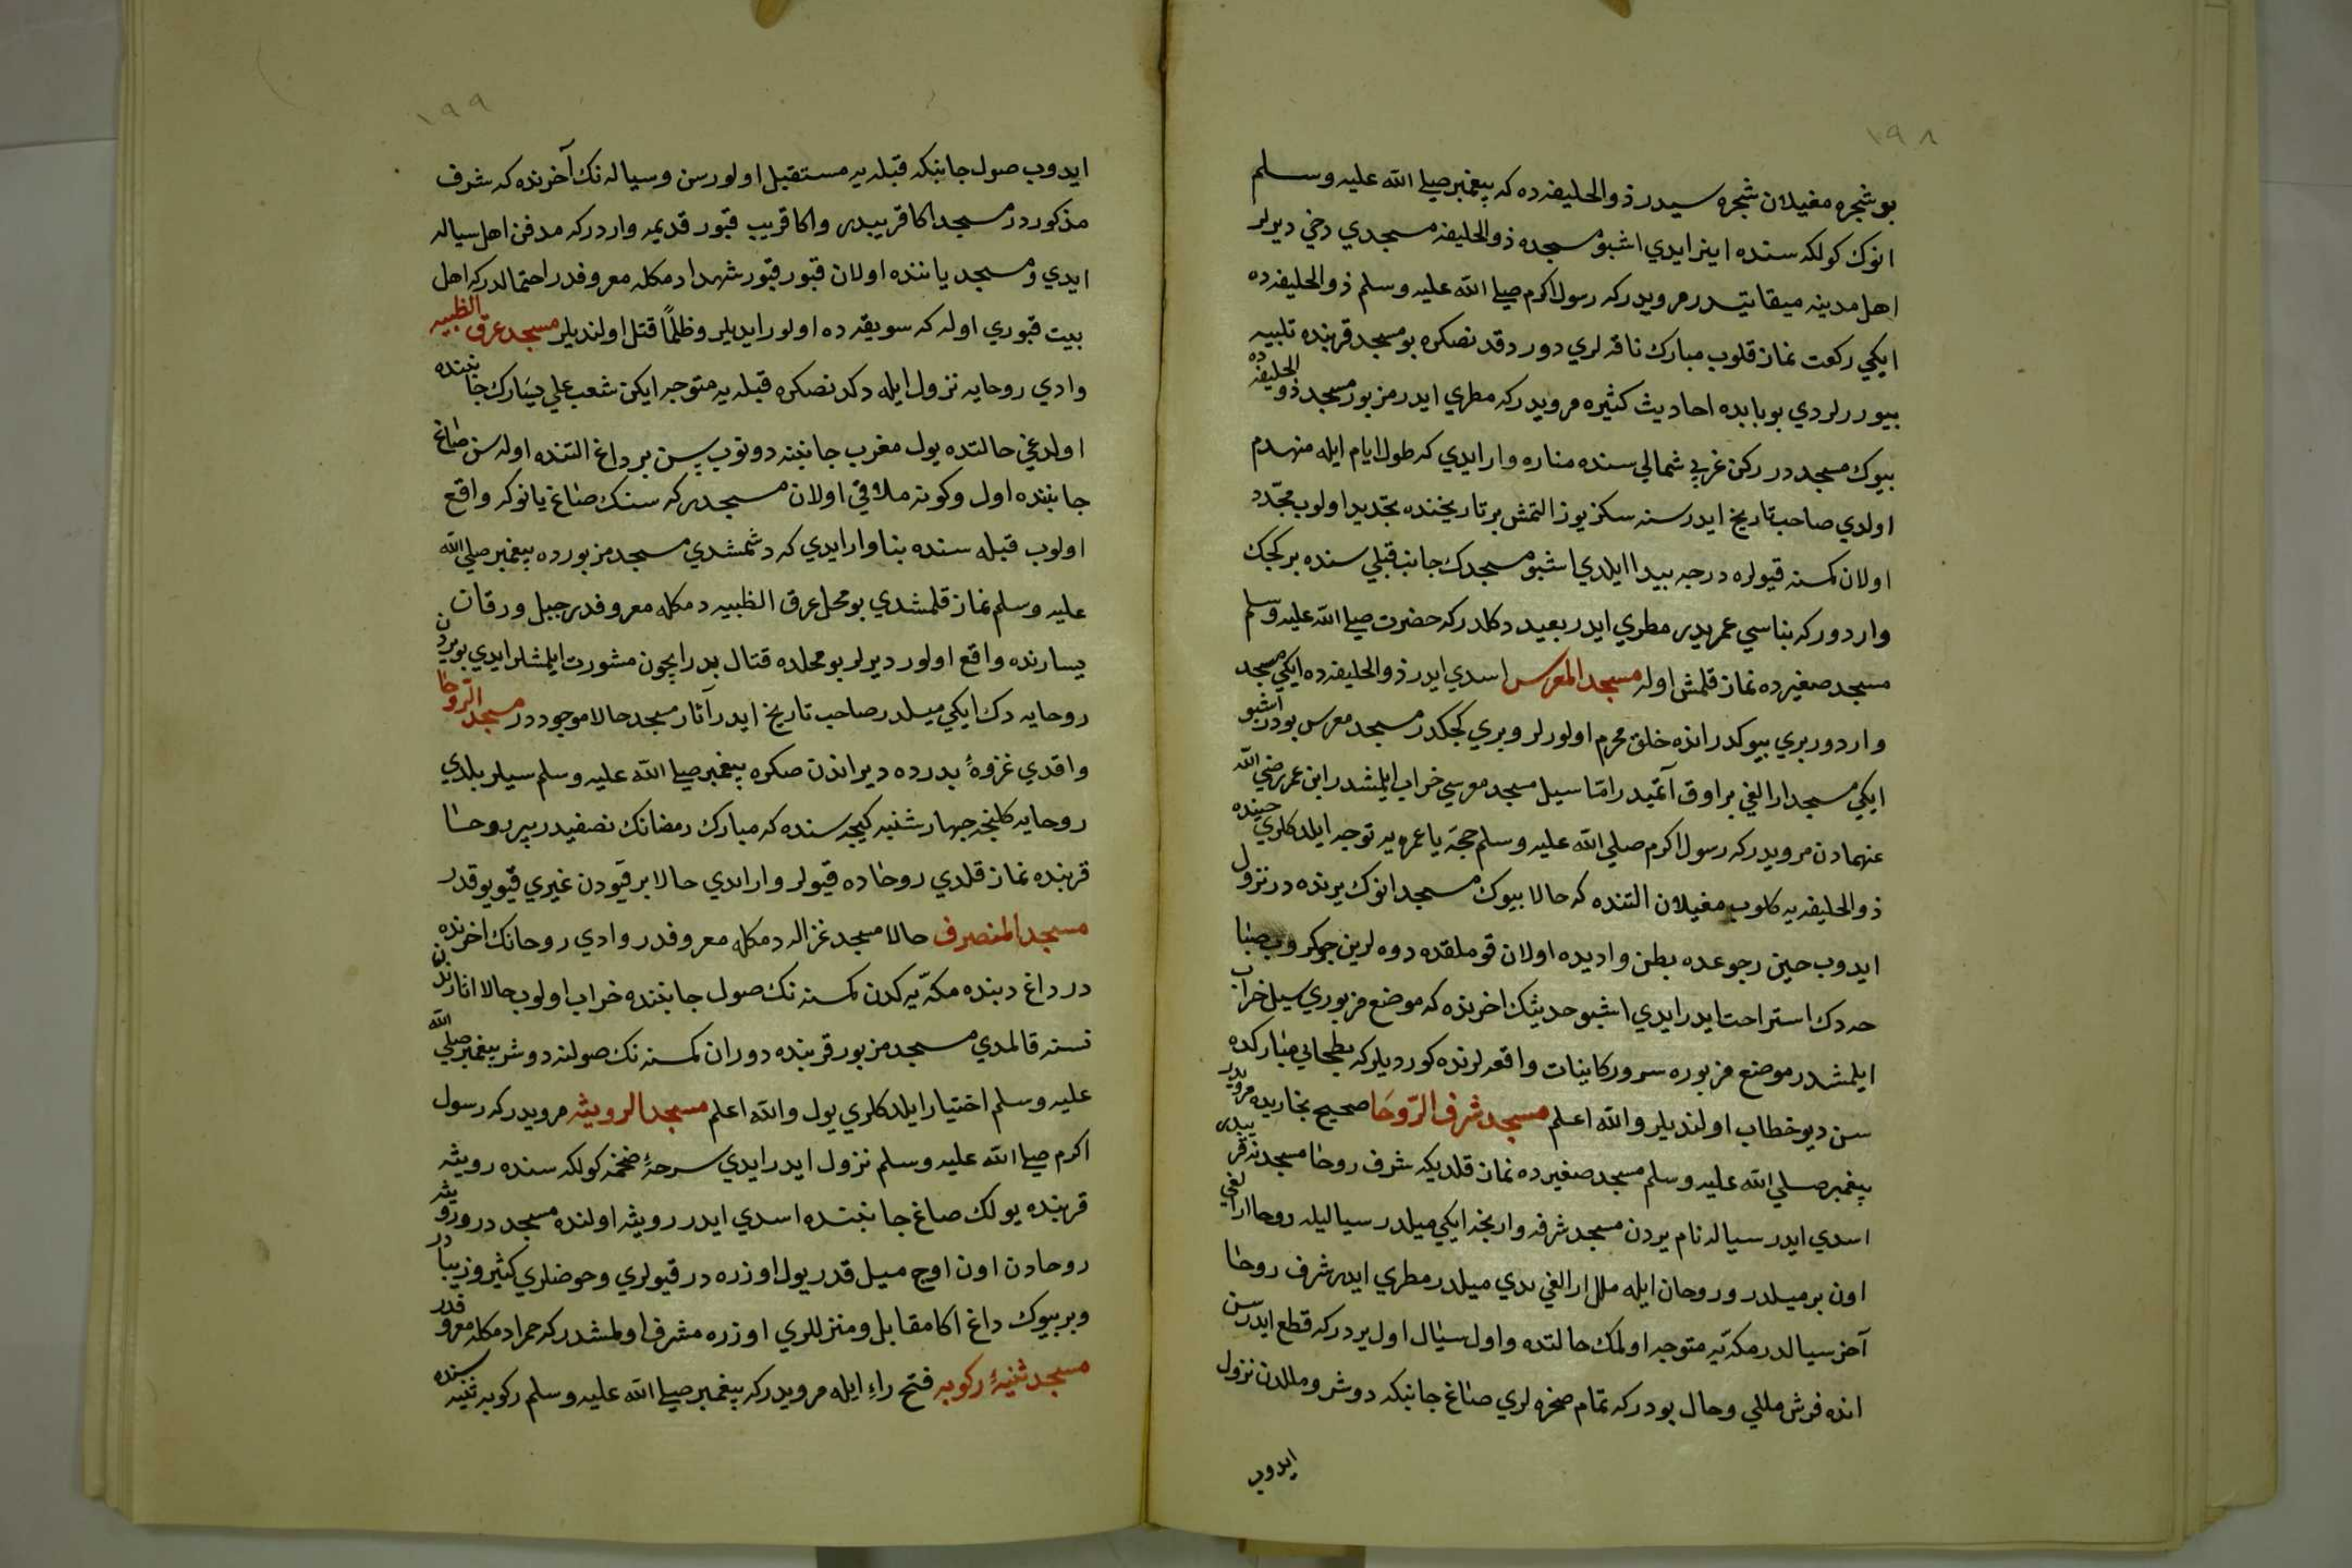 ١٩٨
بو شجره مغیلان شجره سیدر ذوالحلیفه ده که پیغمبر صلی الله علیه وسلم
انوك كولكه سنده اینر ایدی اشبو مسجده ذوالحلیفه مسجدي دخي دیرلر
اهل مدینه میقاتیدر مرویدركه رسول اکرم صلی الله علیه وسلم ذوالحلیفه ده
ایکي رکعت نماز قلوب مبارك ناقه لري دوردقدنصکره بو مسجد قربنده تلبیه
بیوررلردي بو بابده احادیث کثیره مرویدرکه مطري ایدر مزبور مسجد ذوالحلیفه ده
بیوك مسجددر رکن غربي شمالي سنده مناره وار ایدي که طول ایام ایله منهدم
اولدي صاحب تاریخ ایدر سنه سکزیوز التمش بر تاریخنده تجدید اولوب مجدّد
اولان کمسنه قیولره درجه پیدا ایلدي اشبو مسجدك جانب قبلي سنده بر کجك
واردورکه بناسي عمریدر مطري ایدر بعید دکلدرکه حضرت صلی الله علیه وسلم
مسجد صغیرده نماز قلمش اوله مسجد المعرس اسدي ایدر ذوالحلیفه ده ایکي مسجد
واردور بري بیوکدر انده خلق محرم اولورلر وبري کجکدر مسجد معرس بودر اشبو
ایکي مسجد ارالغي بر اوق آتمیدر امّا سیل مسجد معرسي خراب ایلمشدر ابن عمر رضي الله
عنهمادن مرویدرکه رسول اکرم صلي الله علیه وسلم حجّه یا عمره یه توجه ایلدکلري حینده
ذوالحلیفه یه کلوب مغیلان التنده که حالا بیوك مسجد انوك یرنده در نزول
ایدوب حین رجوعده بطن وادیده اولان قوملقده دوه لرین چوکروب صبا
حه دك استراحت ایدر ایدي اشبو حدیثك اخرنده که موضع مزبوري سیل خراب
ایلمشدر موضع مزبوره سرور کاینات واقعه لرنده کوردیلر که بطحاني مبارکده
سن دیو خطاب اولندیلر والله اعلم مسجد شرف الرّوحَا صحیح بخاریده مرویدر
پیغمبر صلي الله علیه وسلم مسجد صغیرده نماز قلدیکه شرف روحا مسجدنه قریبدر
اسدي ایدر سیاله نام یردن مسجد شرفه وارنجه ایکي میلدر سیالیله روحا ارالغي
اون بر میلدر و روحان ایله ملل ارالغي یدي میلدر مطري ایدر شرف روحا
آخر سیالدر مکّه یه متوجه اولمك حالتده و اول سیال اول یردر که قطع ایدرسن
انده فرش مللي وحال بودر که تمام صخره لري صاغ جانبکه دوشر و مللدن نزول
ایدوب
١٩٩
ایدوب صول جانبکه قبله یه مستقبل اولورسن و سیاله نك آخرنده که شرف
مذکوردر مسجد اکا قریبدر واکا قریب قبور قدیمه واردر که مدفن اهل سیاله
ایدي و مسجد یاننده اولان قبور قبور شهدا دمکله معروفدر احتمالدر که اهل
بیت قبوري اوله که سویقه ده اولور ایدیلر وظلمًا قتل اولندیلر مسجد عرق الظبیه
وادي روحایه نزول ایله دکدنصکره قبله یه متوجه ایکن شعب علي یسارك جانبنده
اولدغي حالتده یول مغرب جانبنه دونوب پس بر داغ التنده اوله سن صاغ
جانبنده اول وكونه ملاقي اولان مسجددر که سنك صاغ یانوکه واقع
اولوب قبله سنده بنا وار ایدي که دشمشدي مسجد مزبورده پیغمبر صلي الله
علیه وسلم نماز قلمشدي بو محل عرق الظبیه دمکله معروفدر جبل ورقان
یسارنده واقع اولور دیرلر بو محلده قتال بدر ایچون مشورت ایلمشلر ایدي بو یردن
روحایه دك ایکي میلدر صاحب تاریخ ایدر آثار مسجد حالا موجوددر مسجد الرّوحا
واقدي غزوۀ بدرده دیر اندن صکره پیغمبر صلی الله علیه وسلم سیلر بلدي
روحایه کلنجه جهارشنبه کیجه سنده که مبارك رمضانك نصفیدر بیر روحا
قربنده نماز قلدي روحاده قیولر وارایدي حالا بر قیودن غیري قیو یوقدر
مسجد المنصرف حالا مسجد غزاله دمکله معروفدر وادي روحانك اخرنده
در داغ دبنده مکّه یه کدن کمسنه نك صول جانبنده خراب اولوب حالا اثارندن
نسنه قالمدي مسجد مزبور قربنده دوران کمسنه نك صولنه دوشر پیغمبر صلي الله
علیه وسلم اختیار ایلدکلري یول والله اعلم مسجد الرویثه مرویدرکه رسول
اکرم صلی الله علیه وسلم نزول ایدر ایدي سرحۀ ضخمه کولکه سنده رویثه
قربنده یولك صاغ جانبنده اسدي ایدر رویثه اولنده مسجد در و رویثه
روحادن اون اوچ میل قدر یول اوزره در قیولري وحوضلري کثیر و زیبادر
وبر بیوك داغ اکا مقابل و منزللري اوزره مشرف اولمشدرکه حمرا دمکله معروفدر
مسجد ثنیۀ رکوبه فتح راءِ ایله مرویدرکه پیغمبر صلی الله علیه وسلم رکوبه ثنیه سنده